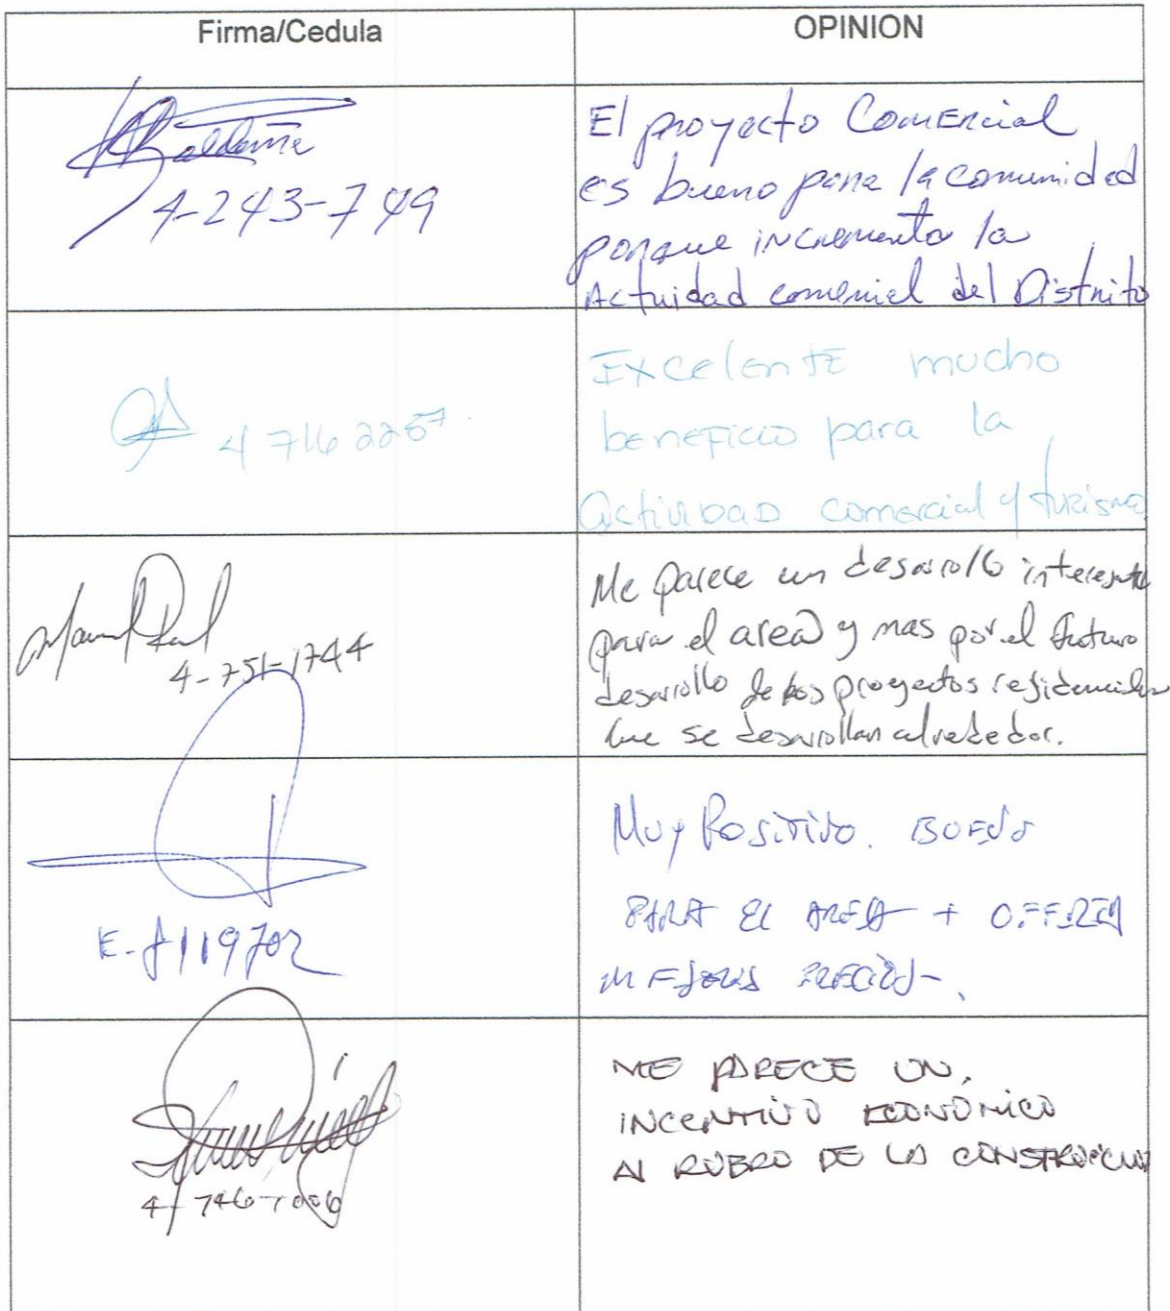 Firma/Cedula
OPINION
4-243-749
El proyecto ComERcial
es bueno para la comunidad
porque incrementa la
Actuidad comercial del Distrito
4 716 2267
Excelente mucho
beneficio para la
actividad comercial y turismo
4-751-1744
Me parece un desarrollo interesante
para el area y mas por el futuro
desarrollo de los proyectos residenciales
que se desarrollan alrededor.
E-8119702
Muy Positivo. BUENO
PARA EL AREA + OFERTA
MEJORES PRECIOS.
4-746-1006
ME PARECE UN,
INCENTIVO ECONÓMICO
AL RUBRO DE LA CONSTRUCCION